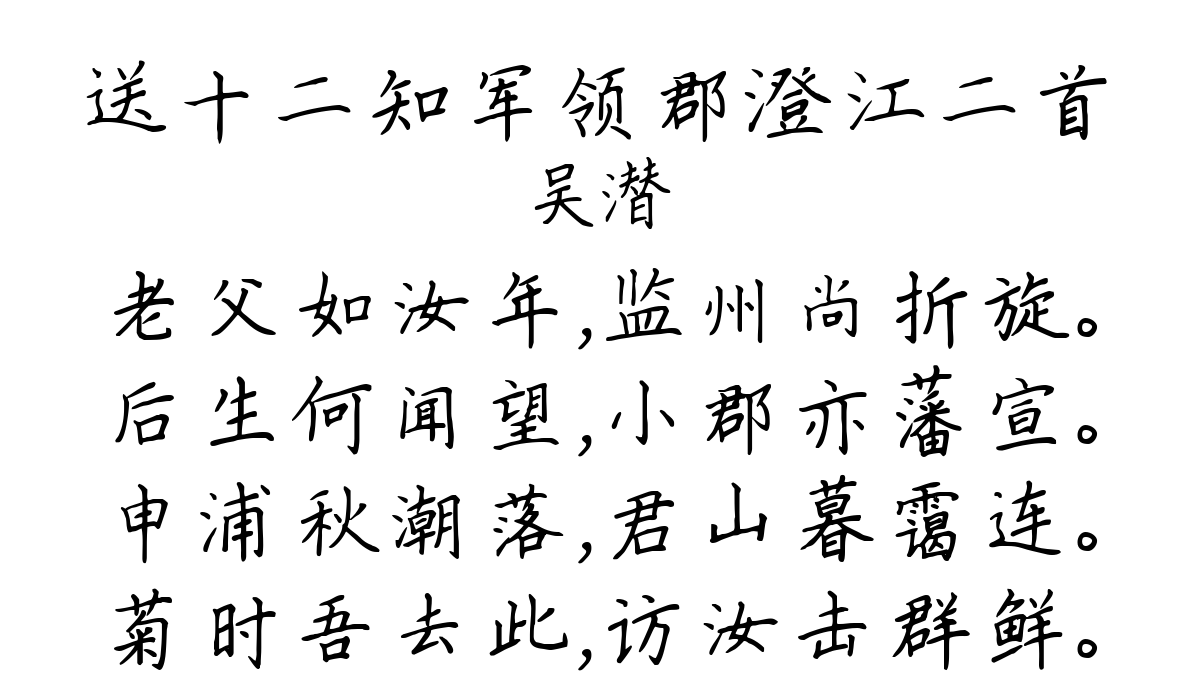 送十二知军领郡澄江二首
吴潜
老父如汝年,监州尚折旋。
后生何闻望,小郡亦藩宣。
申浦秋潮落,君山暮霭连。
菊时吾去此,访汝击群鲜。